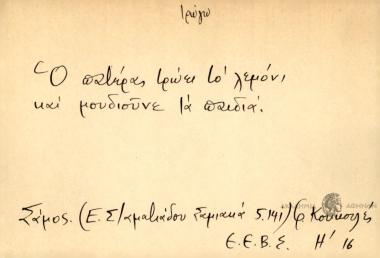 τρώγω
Ὁ πατέρας τρώει τὸ λεμόνι
καὶ μουδιοῦνε τὰ παιδιά.
Σάμος. (Ε. Σταματιάδου Σαμιακά 5.141) Φ. Κουκουλές
ΑΚΑΔΗΜΙΑ ΑΘΗΝΩΝ
Ε.Ε.Β.Σ. Η' 16